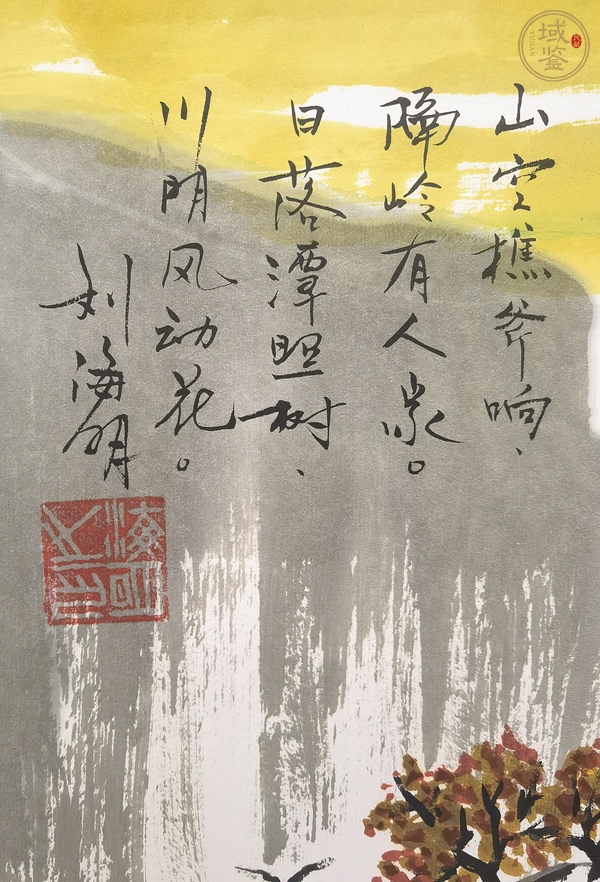 山空樵斧响、
隔岭有人家。
日落潭照树、
川明风动花。
刘海明
海明之印
域鉴